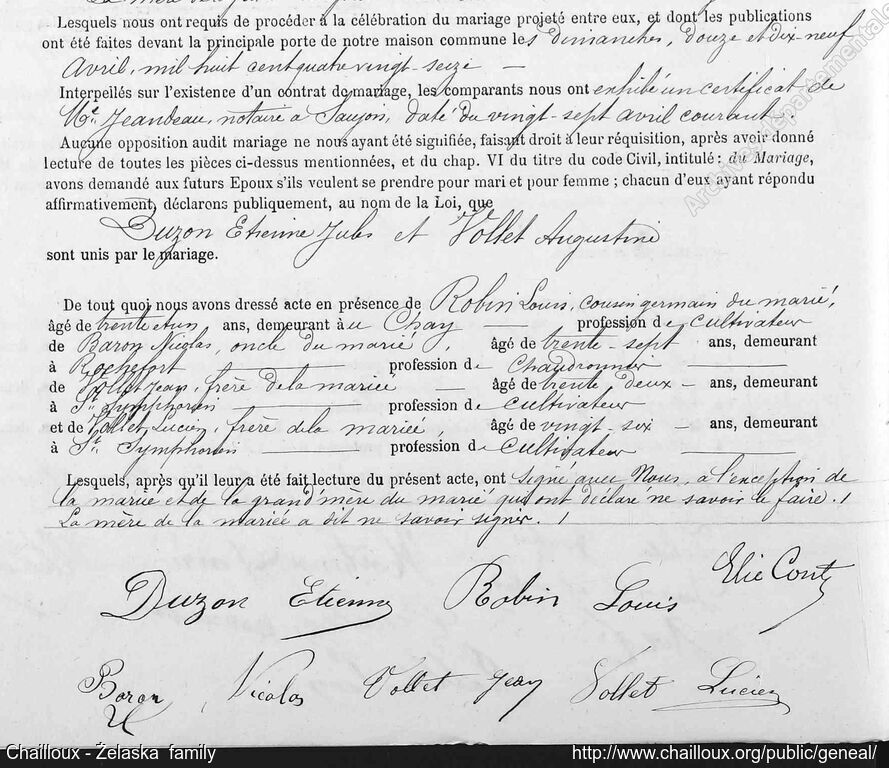 Lesquels nous ont requis de procéder à la célébration du mariage projeté entre eux, et dont les publications
ont été faites devant la principale porte de notre maison commune les dimanches, douze et dix-neuf
Avril, mil huit cent quatre vingt-seize —
Interpellés sur l'existence d'un contrat de mariage, les comparants nous ont exhibé un certificat de
Me Jeandeau, notaire à Saujon, daté du vingt-sept avril courant.
Aucune opposition audit mariage ne nous ayant été signifiée, faisant droit à leur réquisition, après avoir donné
lecture de toutes les pièces ci-dessus mentionnées, et du chap. VI du titre du code Civil, intitulé : du Mariage,
avons demandé aux futurs Epoux s'ils veulent se prendre pour mari et pour femme ; chacun d'eux ayant répondu
affirmativement, déclarons publiquement, au nom de la Loi, que
Duzon Etienne Jules et Vollet Augustine
sont unis par le mariage.
De tout quoi nous avons dressé acte en présence de Robin Louis, cousin germain du marié,
âgé de trente et un ans, demeurant à u Chay — profession de cultivateur
de Baron Nicolas, oncle du marié, âgé de trente-sept ans, demeurant
à Rochefort — profession de Chaudronnier —
de Vollet Jean, frère de la mariée — âgé de trente deux — ans, demeurant
à St Symphorien — profession de cultivateur
et de Vollet Lucien, frère de la mariée âgé de vingt-six — ans, demeurant
à St Symphorien — profession de cultivateur
Lesquels, après qu'il leur a été fait lecture du présent acte, ont signé avec Nous, à l'exception de
la mariée et de la grand'mère du marié qui ont déclaré ne savoir le faire. /
La mère de la mariée a dit ne savoir signer. /
Elie Conty
Duzon Etienne Robin Louis
Baron Nicolas Vollet Jean Vollet Lucien
Archives Départementales
Chailloux - Żelaska family http://www.chailloux.org/public/geneal/